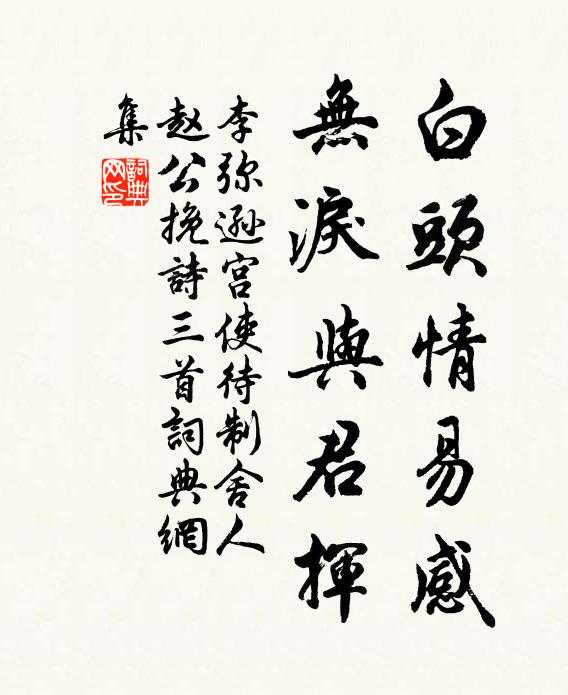 白頭情易感
無淚與君揮
李弥遜宮使待制舍人
赵公挽詩三首詞典網
集
詞典
网印